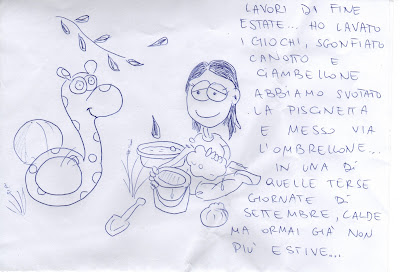 LAVORI DI FINE
ESTATE... HO LAVATO
I GIOCHI, SGONFIATO
CANOTTO E
CIAMBELLONE
ABBIAMO SVUOTATO
LA PISCINETTA
E MESSO VIA
L'OMBRELLONE...
IN UNA DI
QUELLE TERSE
GIORNATE DI
SETTEMBRE, CALDE
MA ORMAI GIÀ NON
PIÙ ESTIVE...